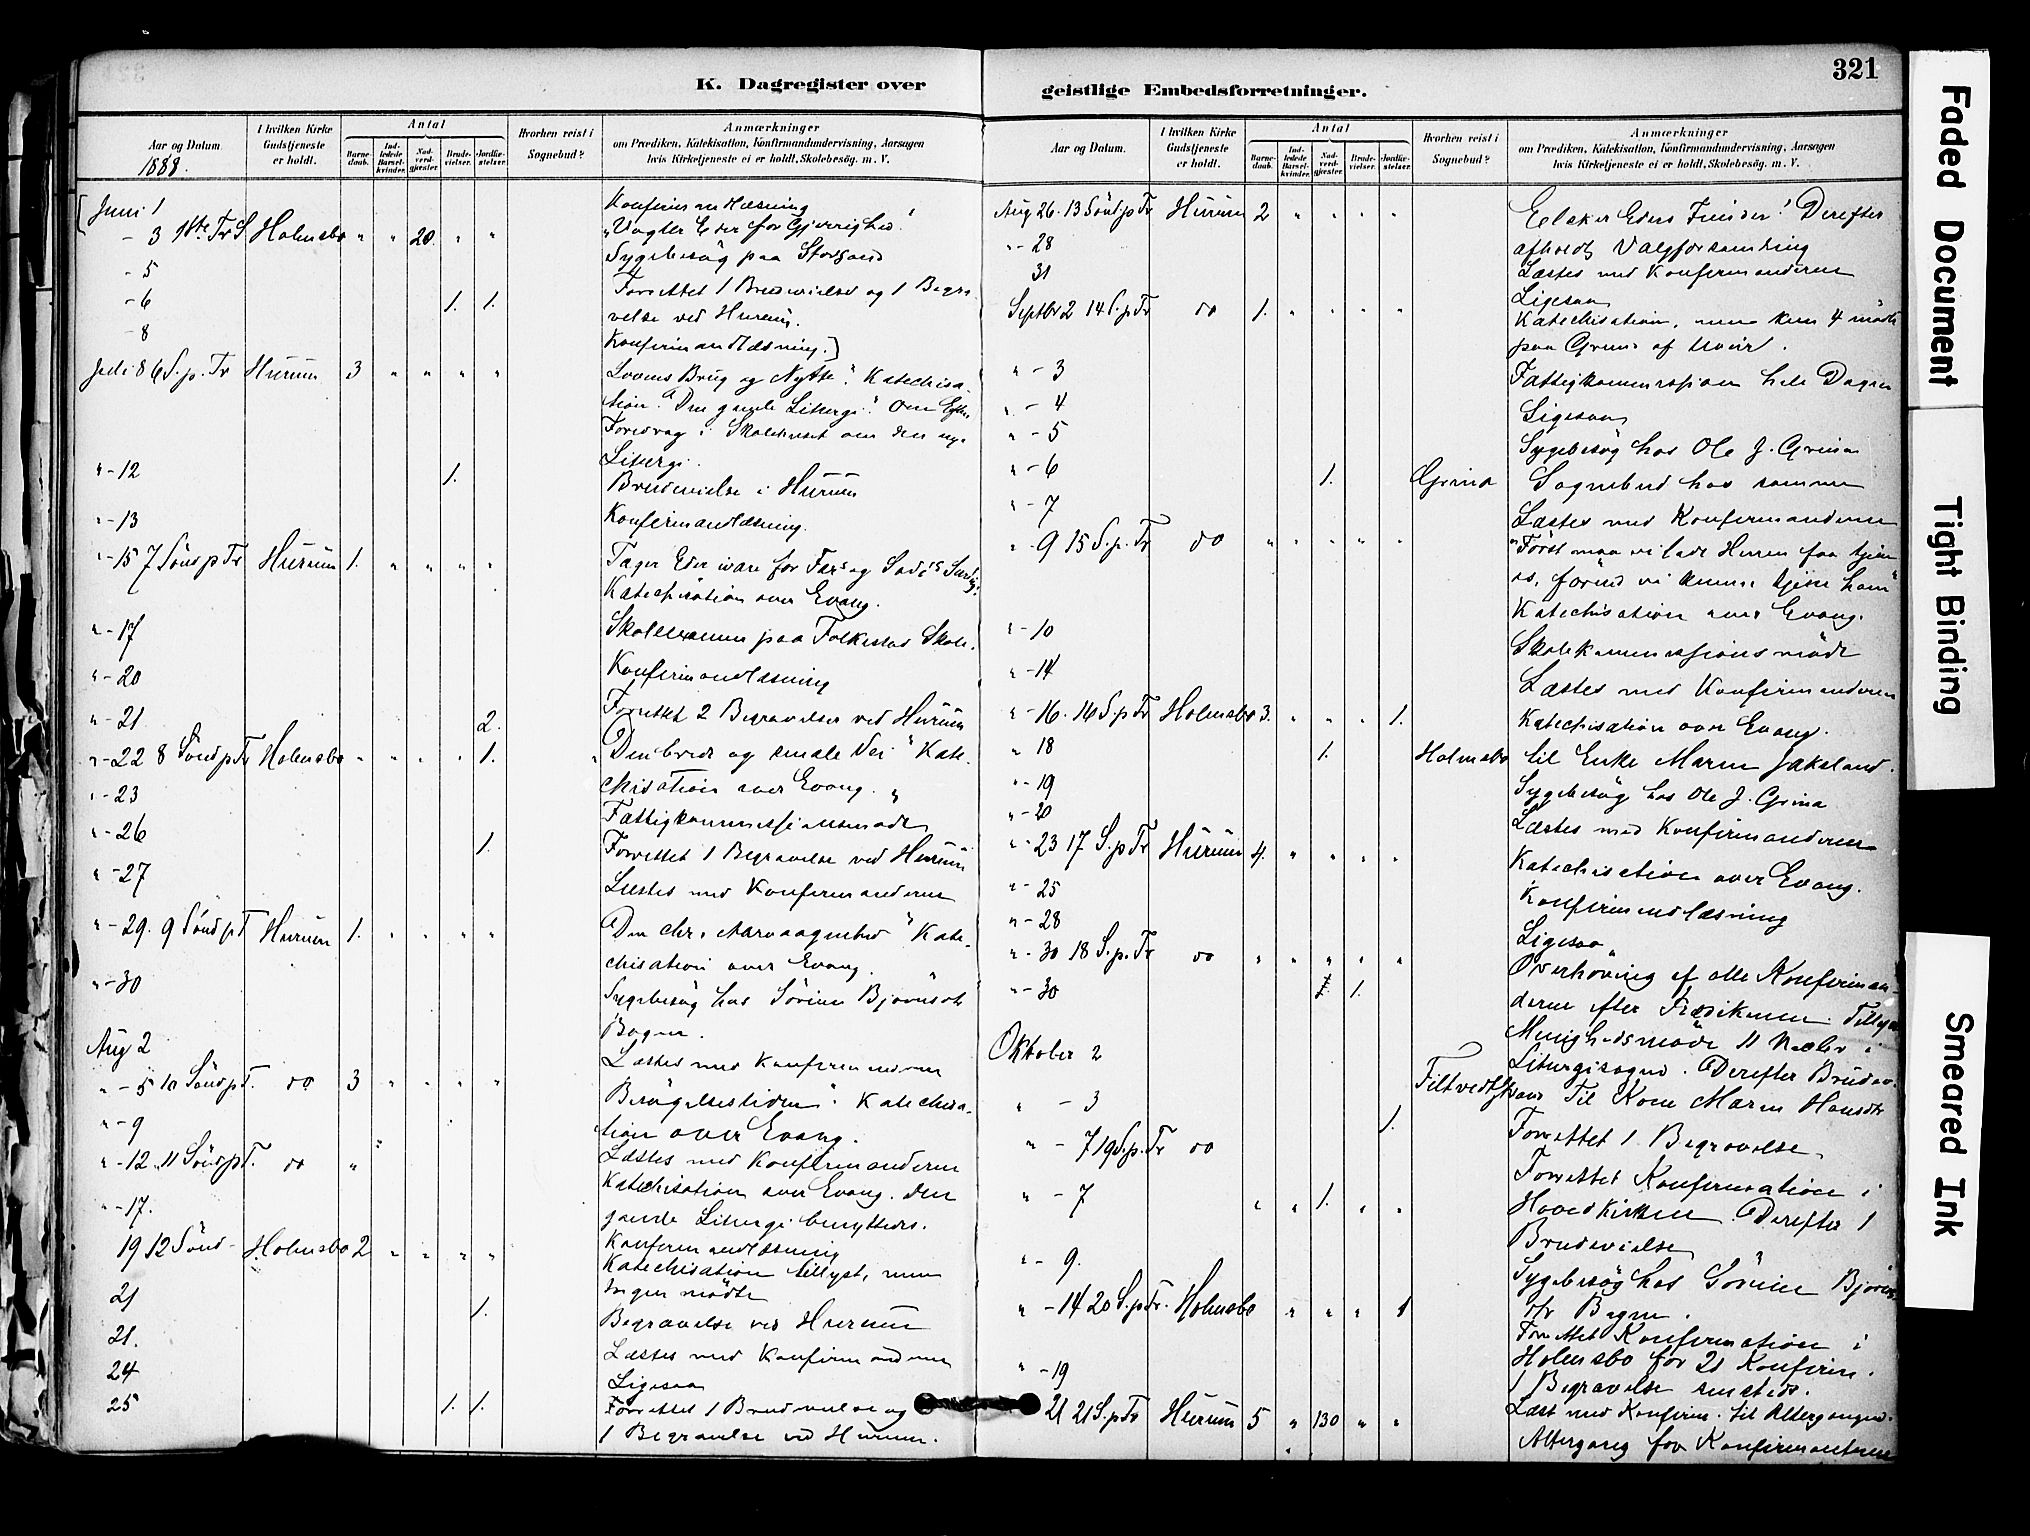 K. Dagregister over
Aar og Datum
1888.
I hvilken Kirke Gudstjeneste er holdt.
Antal
Barne-daab.
Ind-ledede Barsel-kvinder.
Nad-verd-gjæster.
Brude-vielser.
Jordfæ-stelser.
Hvorhen reist i Sognebud?
Anmærkninger
om Prædiken, Katekisation, Konfirmandundervisning, Aarsagen
hvis Kirketjeneste ei er holdt, Skolebesøg. m. V.
Juni 1 Konfirmandlæsning
- 3 1ste Tr S. Holmsbo " " 20. " " "Vogter Eder for Gjerrighed!
- 5 Sygebesøg paa Storsand
- 6 1. 1. Forrettet 1 Brudevielse og 1 Begra-
velse ved Hurum.
- 8 Konfirmandlæsning.]
Juli 8 6 S. p. Tr Hurum 3 " " " " Lovens Brug og Nytte". Katechisa-
tion. Den gamle Liturgi". Om Efter
Foredrag i Skolehuset om den nye
Liturgi.
" - 12 1. Brudevielse i Hurum
" - 13 Konfirmandlæsning.
" - 15 7 Sönd p Tr Hurum 1. " " " " Tager Eder vare for
Katechisation over Evang.
" - 17 Skolexamen paa Folkestad Skole.
" - 20 Konfirmandlæsning
" - 21 2. Forrettet 2 Begravelser ved Hurum
" - 22 8 Sönd p Tr Holmsbo " " " " 1. "Den brede og smale Vei." Kate-
chisation over Evang. "
" - 23 Fattigkommissionsmöde
" - 26 1. Forrettet 1 Begravelse ved Hurum
" - 27 Læstes med Konfirmanderne
" - 29. 9 Sönd p T Hurum 1. " " " " Den chr. Aarvaagenhed" Kate-
chisation over Evang. "
" - 30 Sygebesøg hos Sörine Björnsdt
Bogen.
Aug 2 Læstes med Konfirmanderne
" - 5 10 Sönd p T. do 3 " " " " Besögelsestiden". Katechisa-
tion over Evang.
" - 9 Læstes med Konfirmanderne
" - 12 11 Sönd p T. do " Katechisation over Evang. Den
gamle Liturgi benyttedes.
" - 17. Konfirmandlæsning
19 12 Sönd - Holmsbo 2 " " " " Katechisation tillyst, men
Ingen mödte
21 1. Begravelse ved Hurum
21. Læstes med Konfirmanderne
24 Ligesaa
25 1. 1. Forrettet 1 Brudevielse og
1 Begravelse ved Hurum.
geistlige Embedsforretninger.
321
Aar og Datum.
I hvilken Kirke Gudstjeneste er holdt.
Antal
Barne-daab.
Ind-ledede Barsel-kvinder.
Nad-verd-gjæster.
Brude-vielser.
Jordfæ-stelser.
Hvorhen reist i Sognebud?
Anmærkninger
om Prædiken, Katekisation, Konfirmandundervisning, Aarsagen
hvis Kirketjeneste ei er holdt, Skolebesøg. m. V.
Aug 26. 13 Sönd p Tr Hurum 2 " " " " Elsker Eders Fiender! Derefter
afholdt Valgforsamling
" - 28 Læstes med Konfirmanderne
31 Ligesaa
Septbr 2 14 S. p Tr do 1. " " " " Katechisation, men kun 4 mödte
paa Grund af Uveir.
" - 3 Fattigkommission hele Dagen
" - 4 Ligesaa
" - 5 Sygebesøg hos Ole J. Grina
" - 6 1. Grina Sognebud hos samme
" - 7 Læstes med Konfirmanderne
" - 9 15 S. p. Tr do " " " " " "Först maa vi lade Herren faa tjene
os, förend vi kunne tjene ham"
Katechisation over Evang.
" - 10 Skolekommissionsmöde
" - 14 Læstes med Konfirmanderne
" - 16. 16 S. p Tr Holmsbo 3. " " " 1. Katechisation over Evang.
" 18 1. Holmsbo til Enke Maren Jaksland.
" - 19 Sygebesøg hos Ole J. Grina
" - 20 Læstes med Konfirmanderne
" - 23 17 S. p Tr Hurum 4. " " " " Katechisation over Evang.
" - 25 Konfirmandlæsning
" - 28 Ligesaa
" - 30 18 S. p. Tr do " " " " " Overhöring af alle Konfirman-
derne efter Prædikenen.
" - 30 1. Menighedsmöde
Liturgisagen. Derefter Brudev.
Oktober 2 Filtvedt Til Kone Maren Hansdtr
" - 3 1. Forrettet 1 Begravelse
" - 7 19 S. p. Tr do Forrettet Konfirmation i
Hovedkirken. Derefter 1
" - 7 " " 1. " " Brudevielse
" - 9. Sygebesøg hos Sörine Björns-
dtr Bogen.
" - 14 20 S. p Tr. Holmsbo " " " 1 Forrettet Konfirmation i
Holmsbo for 21 Konfirm.
1 Begravelse smsteds.
" - 19 Læst med Konfirm. til Altergangen.
21 21 S. p Tr Hurum 5 " 130 " " Altergang for Konfirmanterne
Faded Document
Tight Binding
Smeared Ink